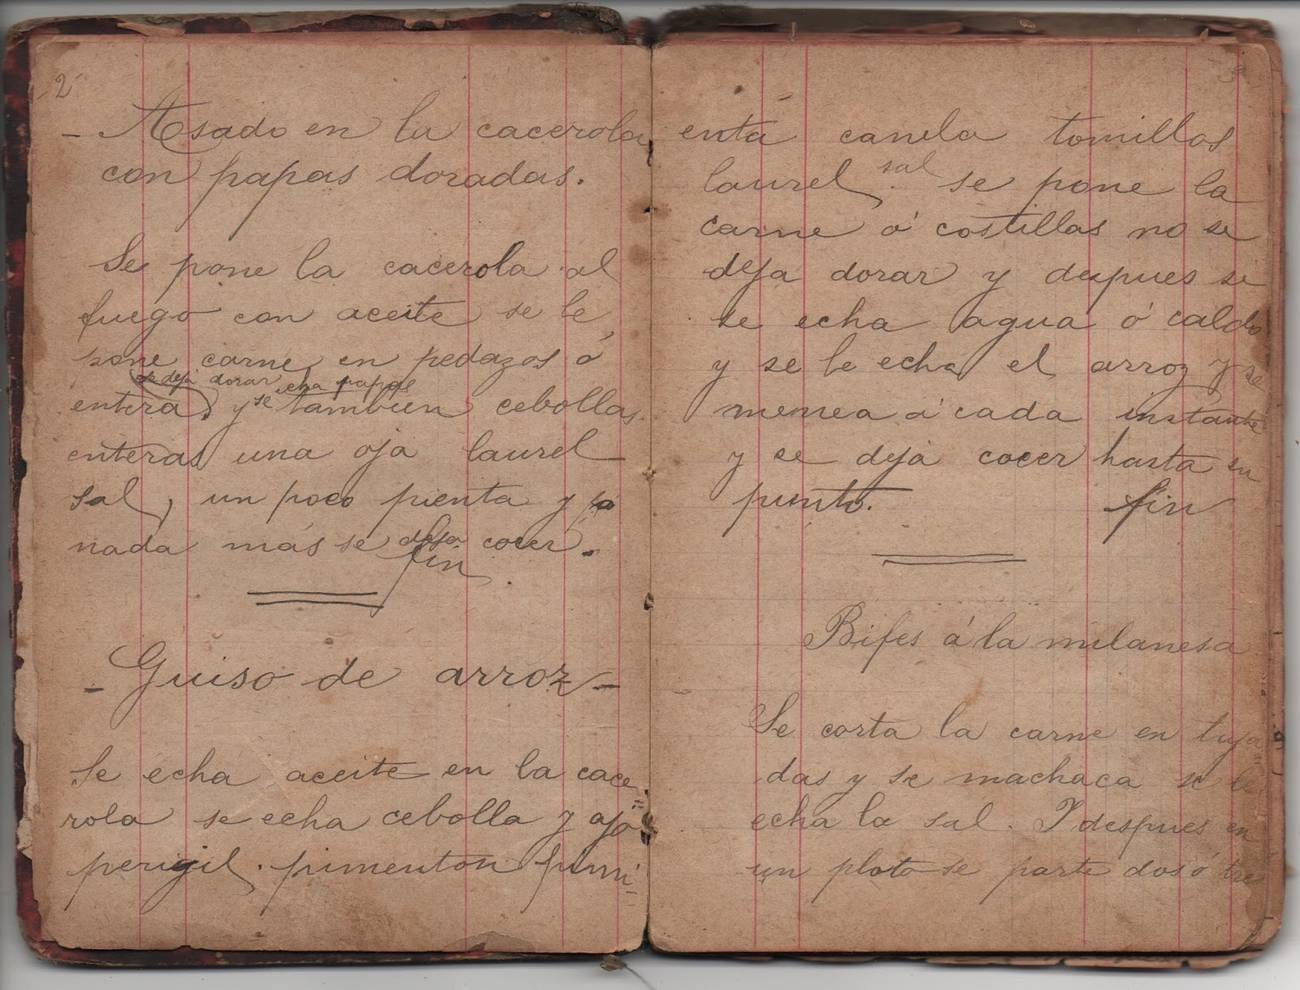 2
- Asado en la cacerola
con papas doradas.
Se pone la cacerola al
fuego con aceite se le
pone carne en pedazos ó
se deja dorar echa papas
entera, y se tambien cebollas
enteras una oja laurel
sal, un poco pienta y
nada más se deja cocer.
fin
- Guiso de arroz -
Se echa aceite en la cace
rola se echa cebolla y ajo
perigil. pimenton pimi
3
enta canela tomillos
laurel sal se pone la
carne ó costillas no se
deja dorar y despues se
se echa agua ó caldo
y se le echa el arroz y se
menea a cada instante
y se deja cocer hasta su
punto. fin
Bifes á la milanesa
Se corta la carne en taja
das y se machaca se le
echa la sal. Y despues en
un plato se parte dos ó tre